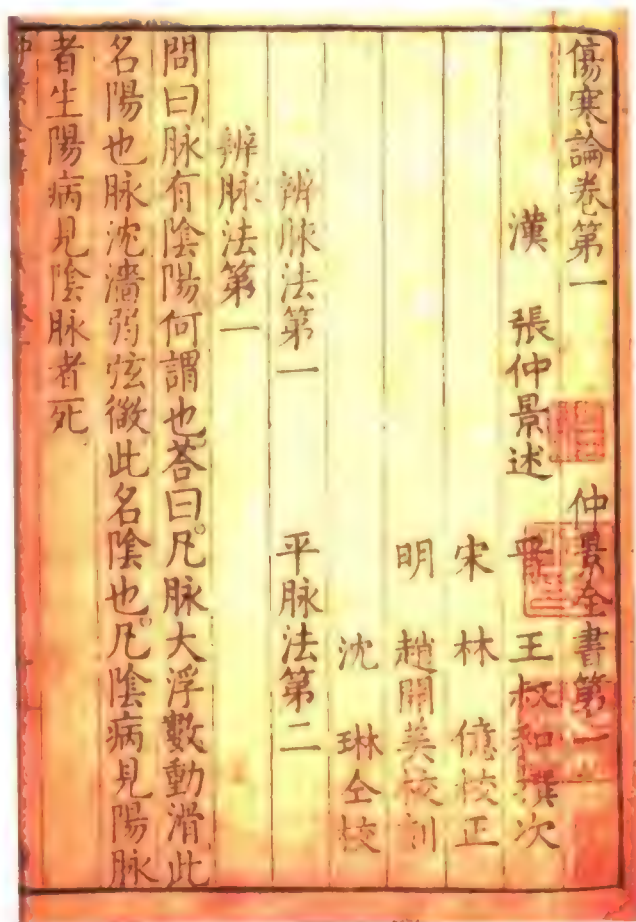 傷寒論卷第一　仲景全書第一
漢　張仲景述　晋　王叔和撰次
宋　林　億校正
明　趙開美校刻
沈　琳仝校
辨脉法第一　平脉法第二
辨脉法第一
問曰脉有陰陽何謂也荅曰凡脉大浮數動滑此
名陽也脉沈濇弱弦微此名陰也凡陰病見陽脉
者生陽病見陰脉者死